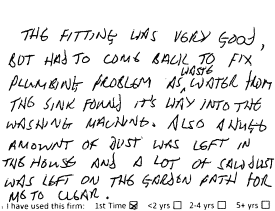 THE FITTING WAS VERY GOOD,
BUT HAD TO COME BACK TO FIX
PLUMBING PROBLEM AS WASTE WATER FROM
THE SINK FOUND IT'S WAY INTO THE
WASHING MACHINE. ALSO A HUGE
AMOUNT OF DUST WAS LEFT IN
THE HOUSE AND A LOT OF SAWDUST
WAS LEFT ON THE GARDEN PATH FOR
ME TO CLEAR.
I have used this firm: 1st Time ☒ <2 yrs ☐ 2-4 yrs ☐ 5+ yrs ☐